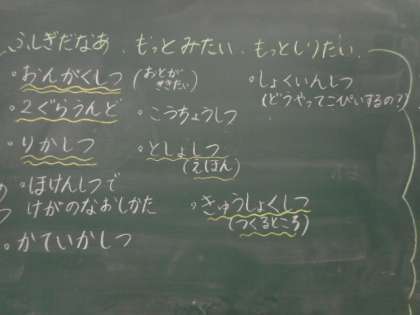 ふしぎだなあ．もっとみたい．もっとしりたい．
・おんがくしつ (おとが ききたい)
・しょくいんしつ
(どうやってこぴいするの?)
・2ぐらうんど
・こうちょうしつ
・りかしつ
・としょしつ
(えほん)
・ほけんしつで
けがのなおしかた
・きゅうしょくしつ
(つくるところ)
・かていかしつ